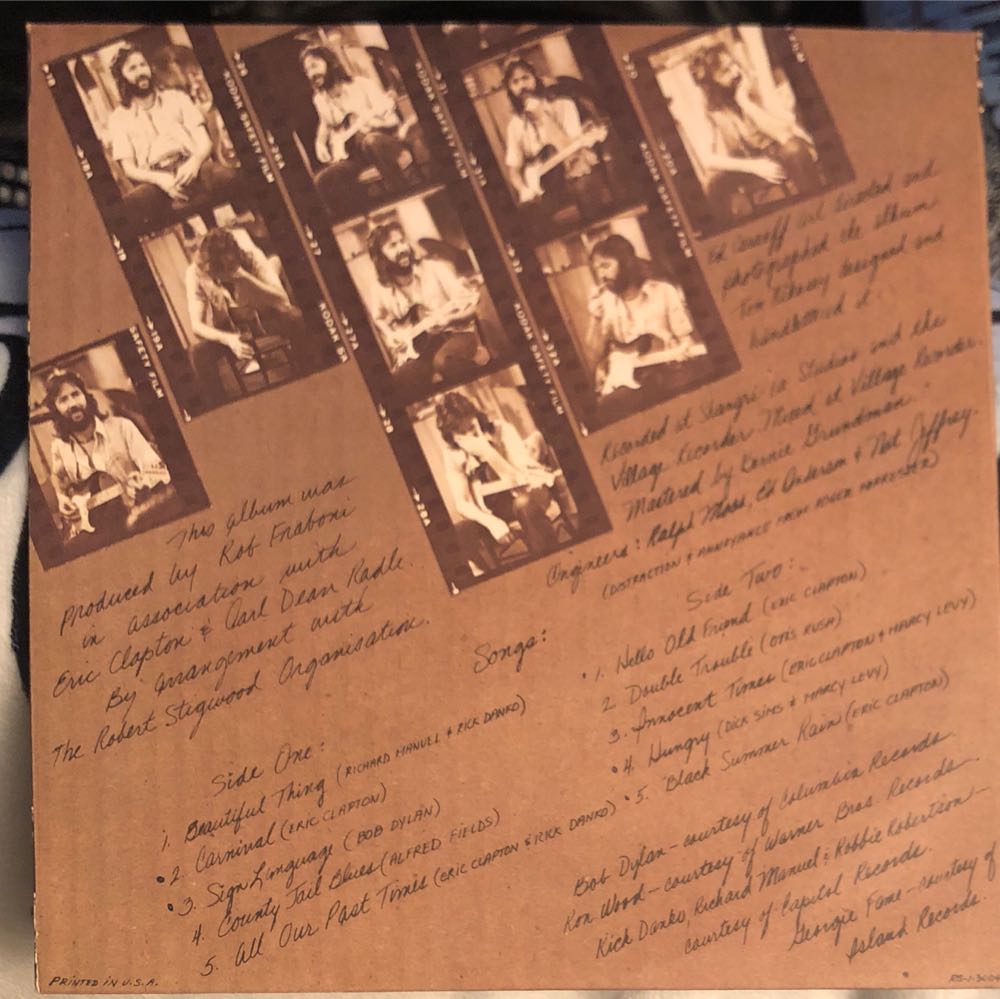 KODAK SAFETY FILM
KODAK SAFETY FILM
KODAK SAFETY FILM
SAFETY FILM
KODAK SAFETY FILM
Ed Caraeff art directed and
photographed the album
Tom Nikosey designed and
handlettered it.
Recorded at Shangri-la Studios and the
Village Recorder. Mixed at Village Recorder.
Mastered by Bernie Grundman.
Engineers: Ralph Moss, Ed Anderson & Nat Jeffrey.
(DISTRACTION & ANNOYANCE FROM ROGER FORRESTER)
This album was
produced by Rob Fraboni
in association with
Eric Clapton & Carl Dean Radle.
By arrangement with
The Robert Stigwood Organisation.
Songs:
Side One:
1. Beautiful Thing (RICHARD MANUEL & RICK DANKO)
•2. Carnival (ERIC CLAPTON)
•3. Sign Language (BOB DYLAN)
4. County Jail Blues (ALFRED FIELDS)
5. All Our Past Times (ERIC CLAPTON & RICK DANKO)
Side Two:
•1. Hello Old Friend (ERIC CLAPTON)
2. Double Trouble (OTIS RUSH)
3. Innocent Times (ERIC CLAPTON & MARCY LEVY)
•4. Hungry (DICK SIMS & MARCY LEVY)
•5. Black Summer Rain (ERIC CLAPTON)
Bob Dylan – courtesy of Columbia Records.
Ron Wood – courtesy of Warner Bros. Records.
Rick Danko, Richard Manuel & Robbie Robertson –
courtesy of Capitol Records.
Georgie Fame – courtesy of
Island Records.
PRINTED IN U.S.A.